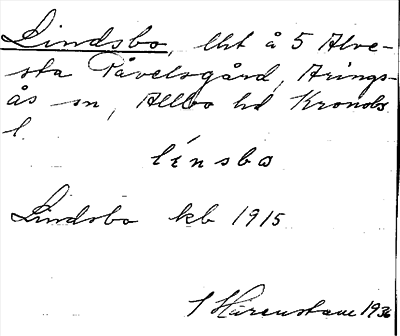 Lindsbo, lht å 5 Alve-
sta Påvelsgård, Arings-
ås sn, Allbo hd Kronobs
l.
línsbo
Lindsbo kb 1915
1936